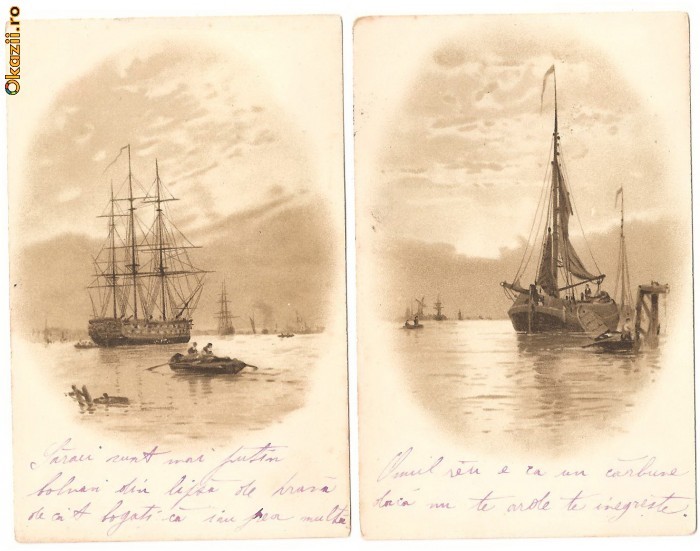 Okazii.ro
Săraci sunt mai puțin
bolnavi din lipsă de brasă
de cât bogați că iau prea multă
Omul rĕu e ca un cărbune
daca nu te arde te inegrişte.